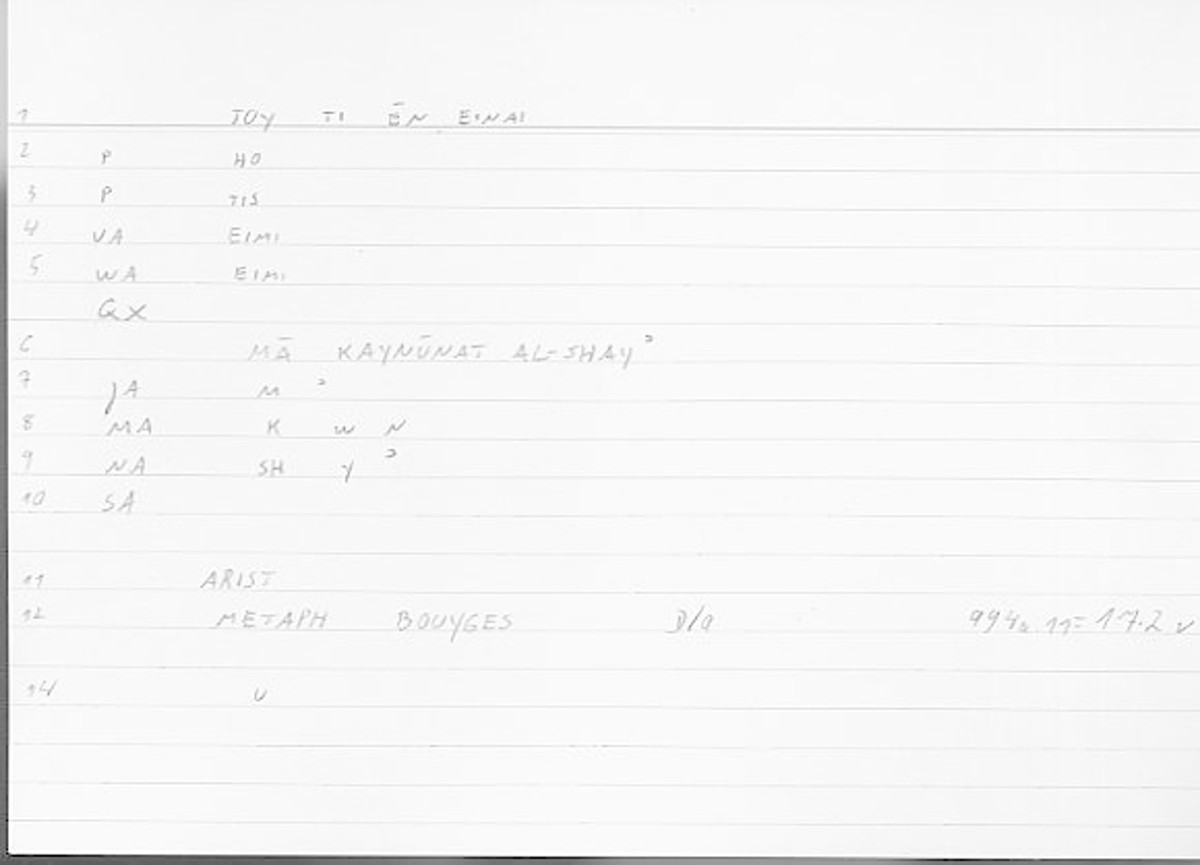 1 TOY TI ĒN EINAI
2 P HO
3 P TIS
4 VA EIMI
5 WA EIMI
GX
6 MĀ KAYNŪNAT AL-SHAYʾ
7 JA M ʾ
8 MA K W N
9 NA SH Y ʾ
10 SA
11 ARIST
12 METAPH BOUYGES D/a 994a 11= 17.2 v
14 U